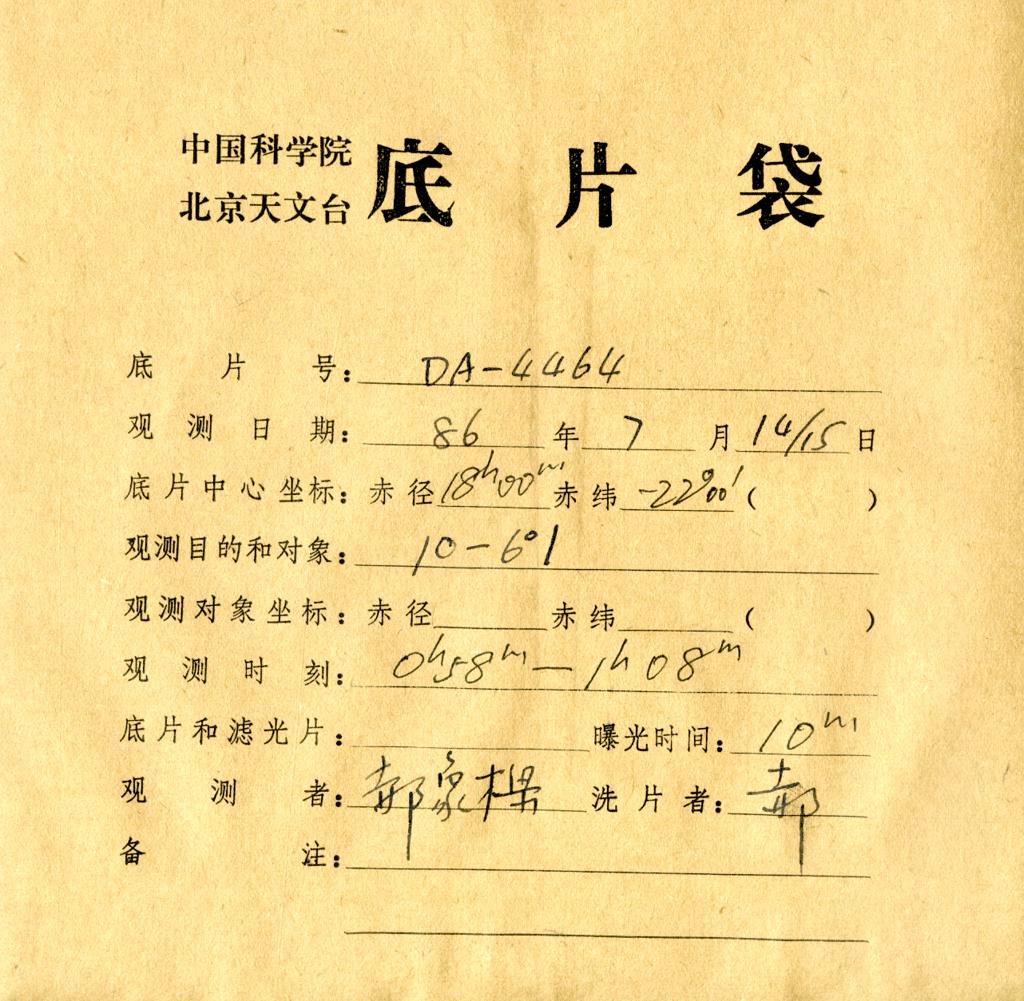 中国科学院
北京天文台
底片袋
底片号：DA-4464
观测日期：86年7月14/15日
底片中心坐标：赤径18h00m赤纬-22°00′（ ）
观测目的和对象：10-6°1
观测对象坐标：赤径 赤纬 （ ）
观测时刻：0h58m—1h08m
底片和滤光片： 曝光时间：10m
观测者：郝象樑 洗片者：郝
备注：